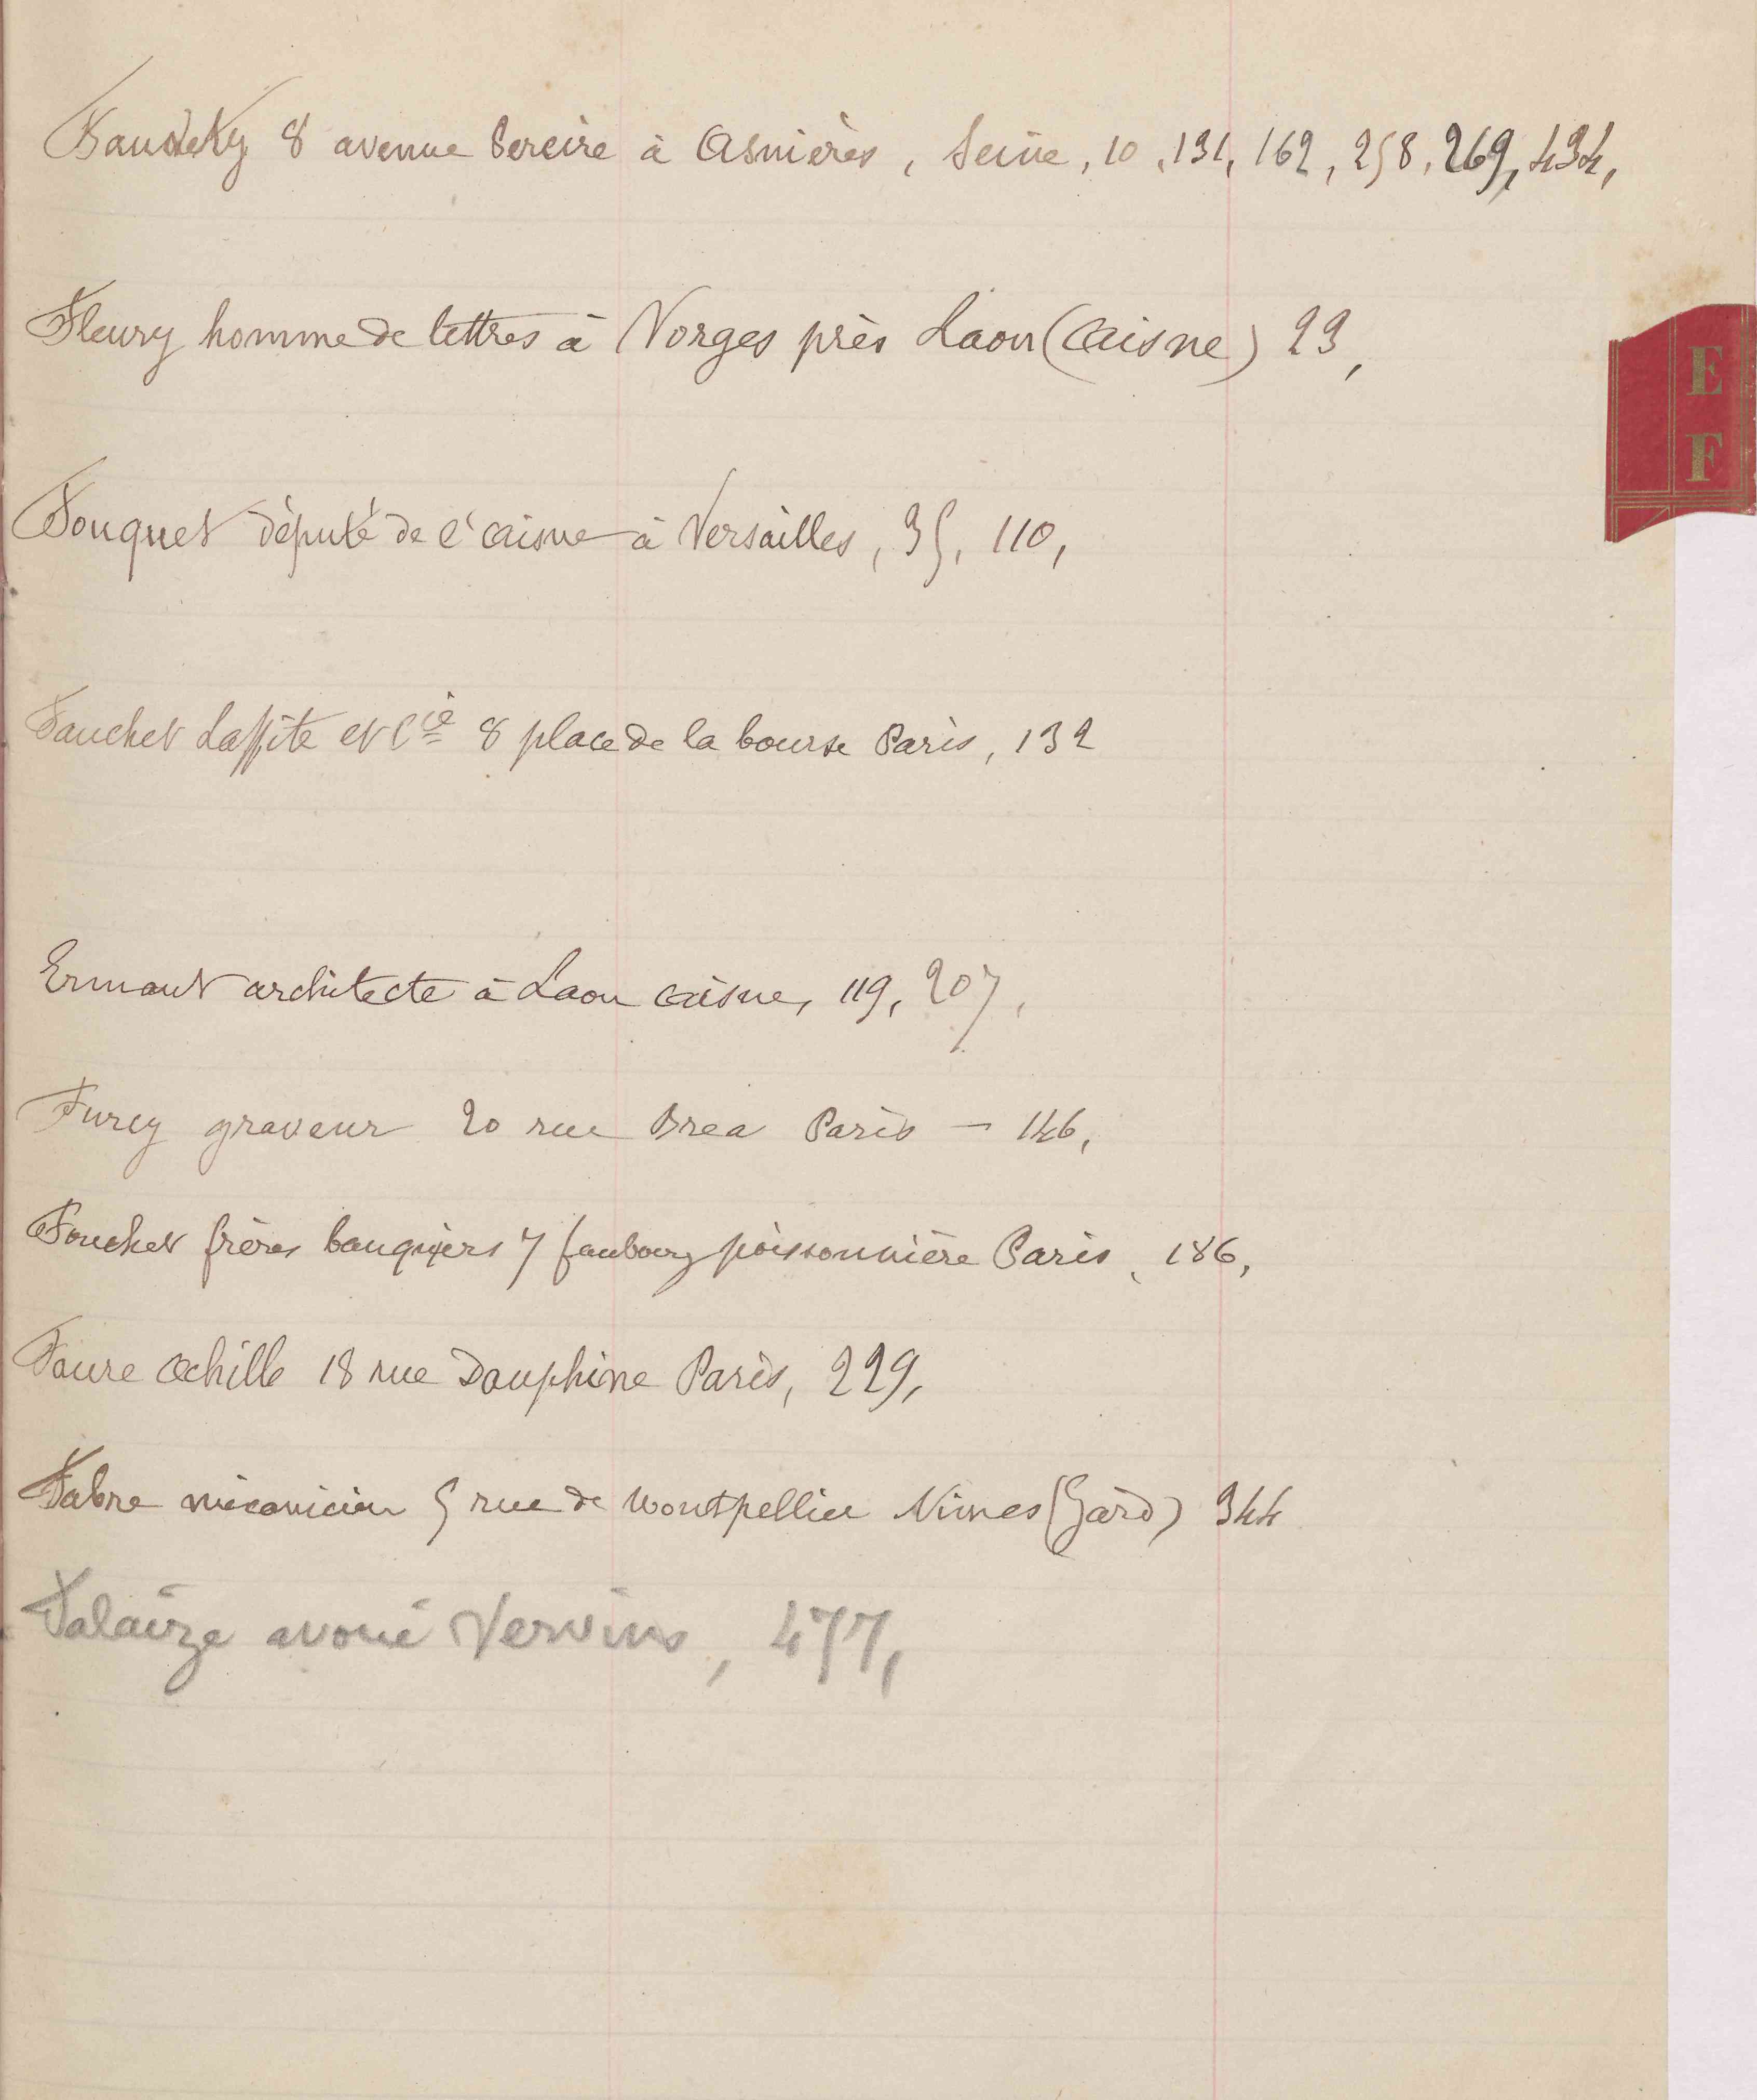 Fauvety 8 avenue Pereire à Asnières, Seine, 10, 131, 162, 258, 269, 434,
Fleury homme de lettres à Vorges près Laon (Aisne) 23,
E
F
Fouquet député de l'Aisne à Versailles, 35, 110,
Fauchet Laffite et Cie 8 place de la bourse Paris, 132
Ermant architecte à Laon Aisne, 119, 207,
Furcy graveur 20 rue Brea Paris — 146,
Fouchet frères banquiers 7 faubourg poissonnière Paris, 186,
Faure Achille 18 rue Dauphine Paris, 229,
Fabre mécanicien 5 rue de Montpellier Nimes (Gard) 344
Falaize avoué Vervins, 477,